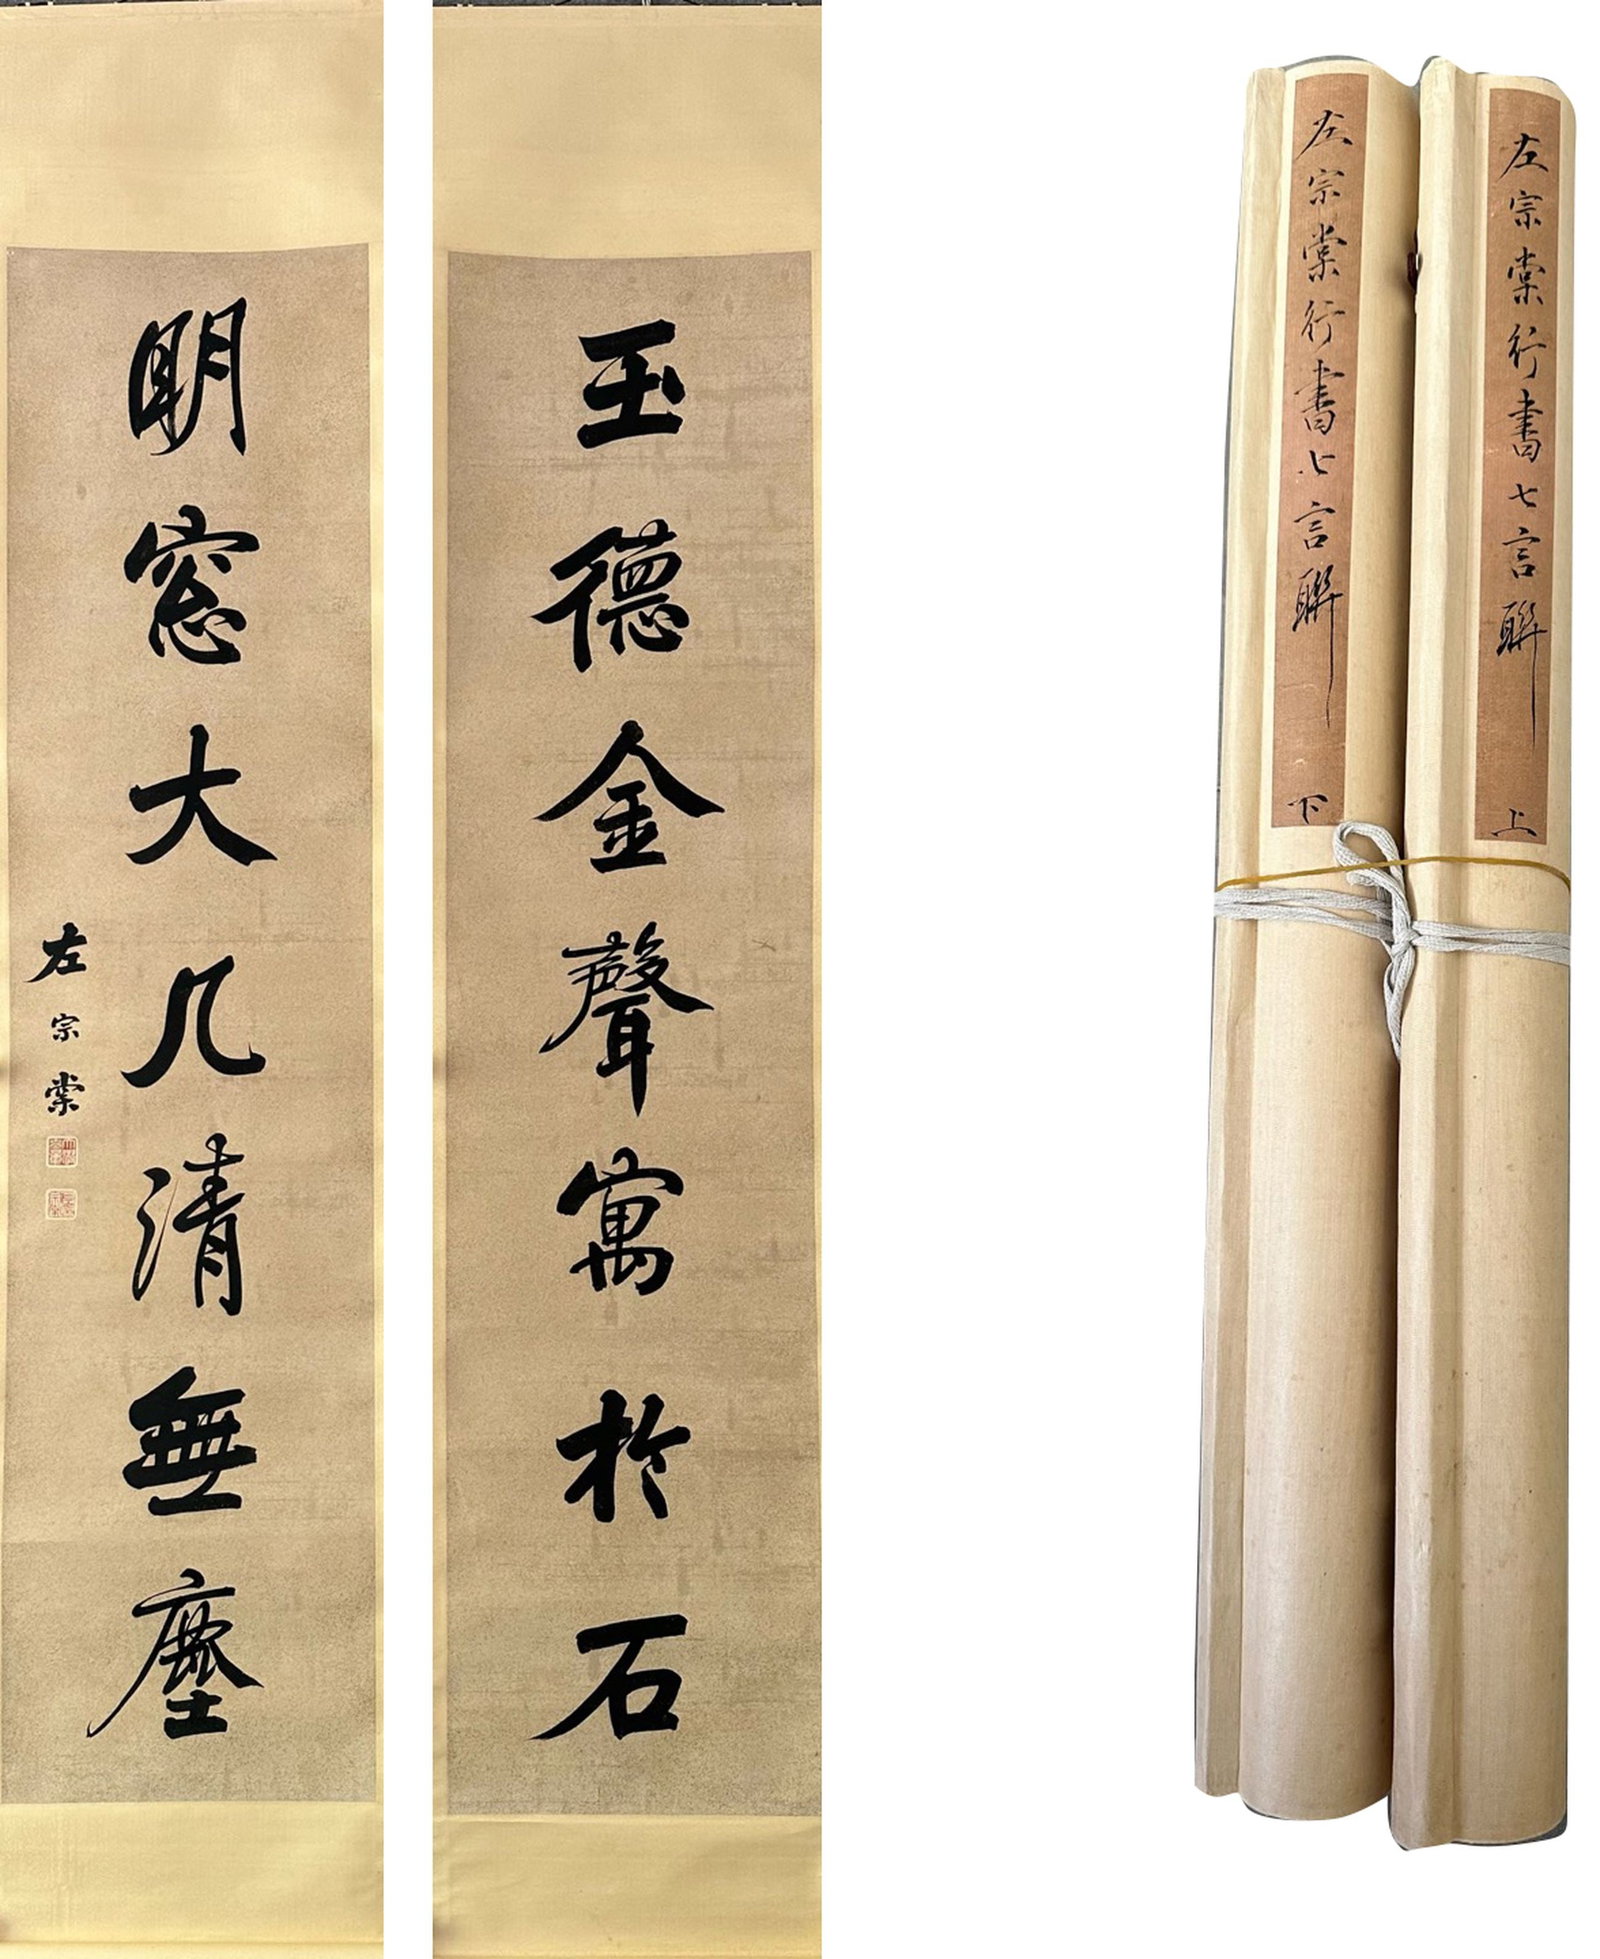 玉德金聲寓於石
明窓大几清無塵
左宗棠
左宗棠行書七言聯 上
左宗棠行書七言聯 下